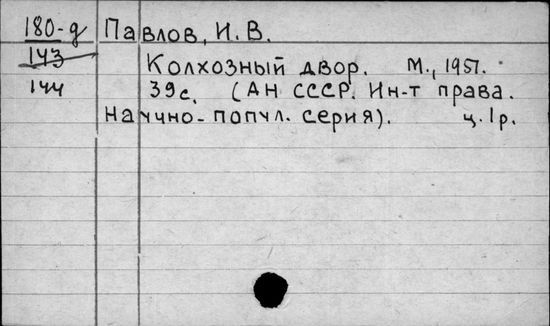 180-д Павлов, И. В.
143 Колхозный двор. М., 1957.
144 39с. (АН СССР. Ин-т права.
Научно-попул. серия). ц. 1р.